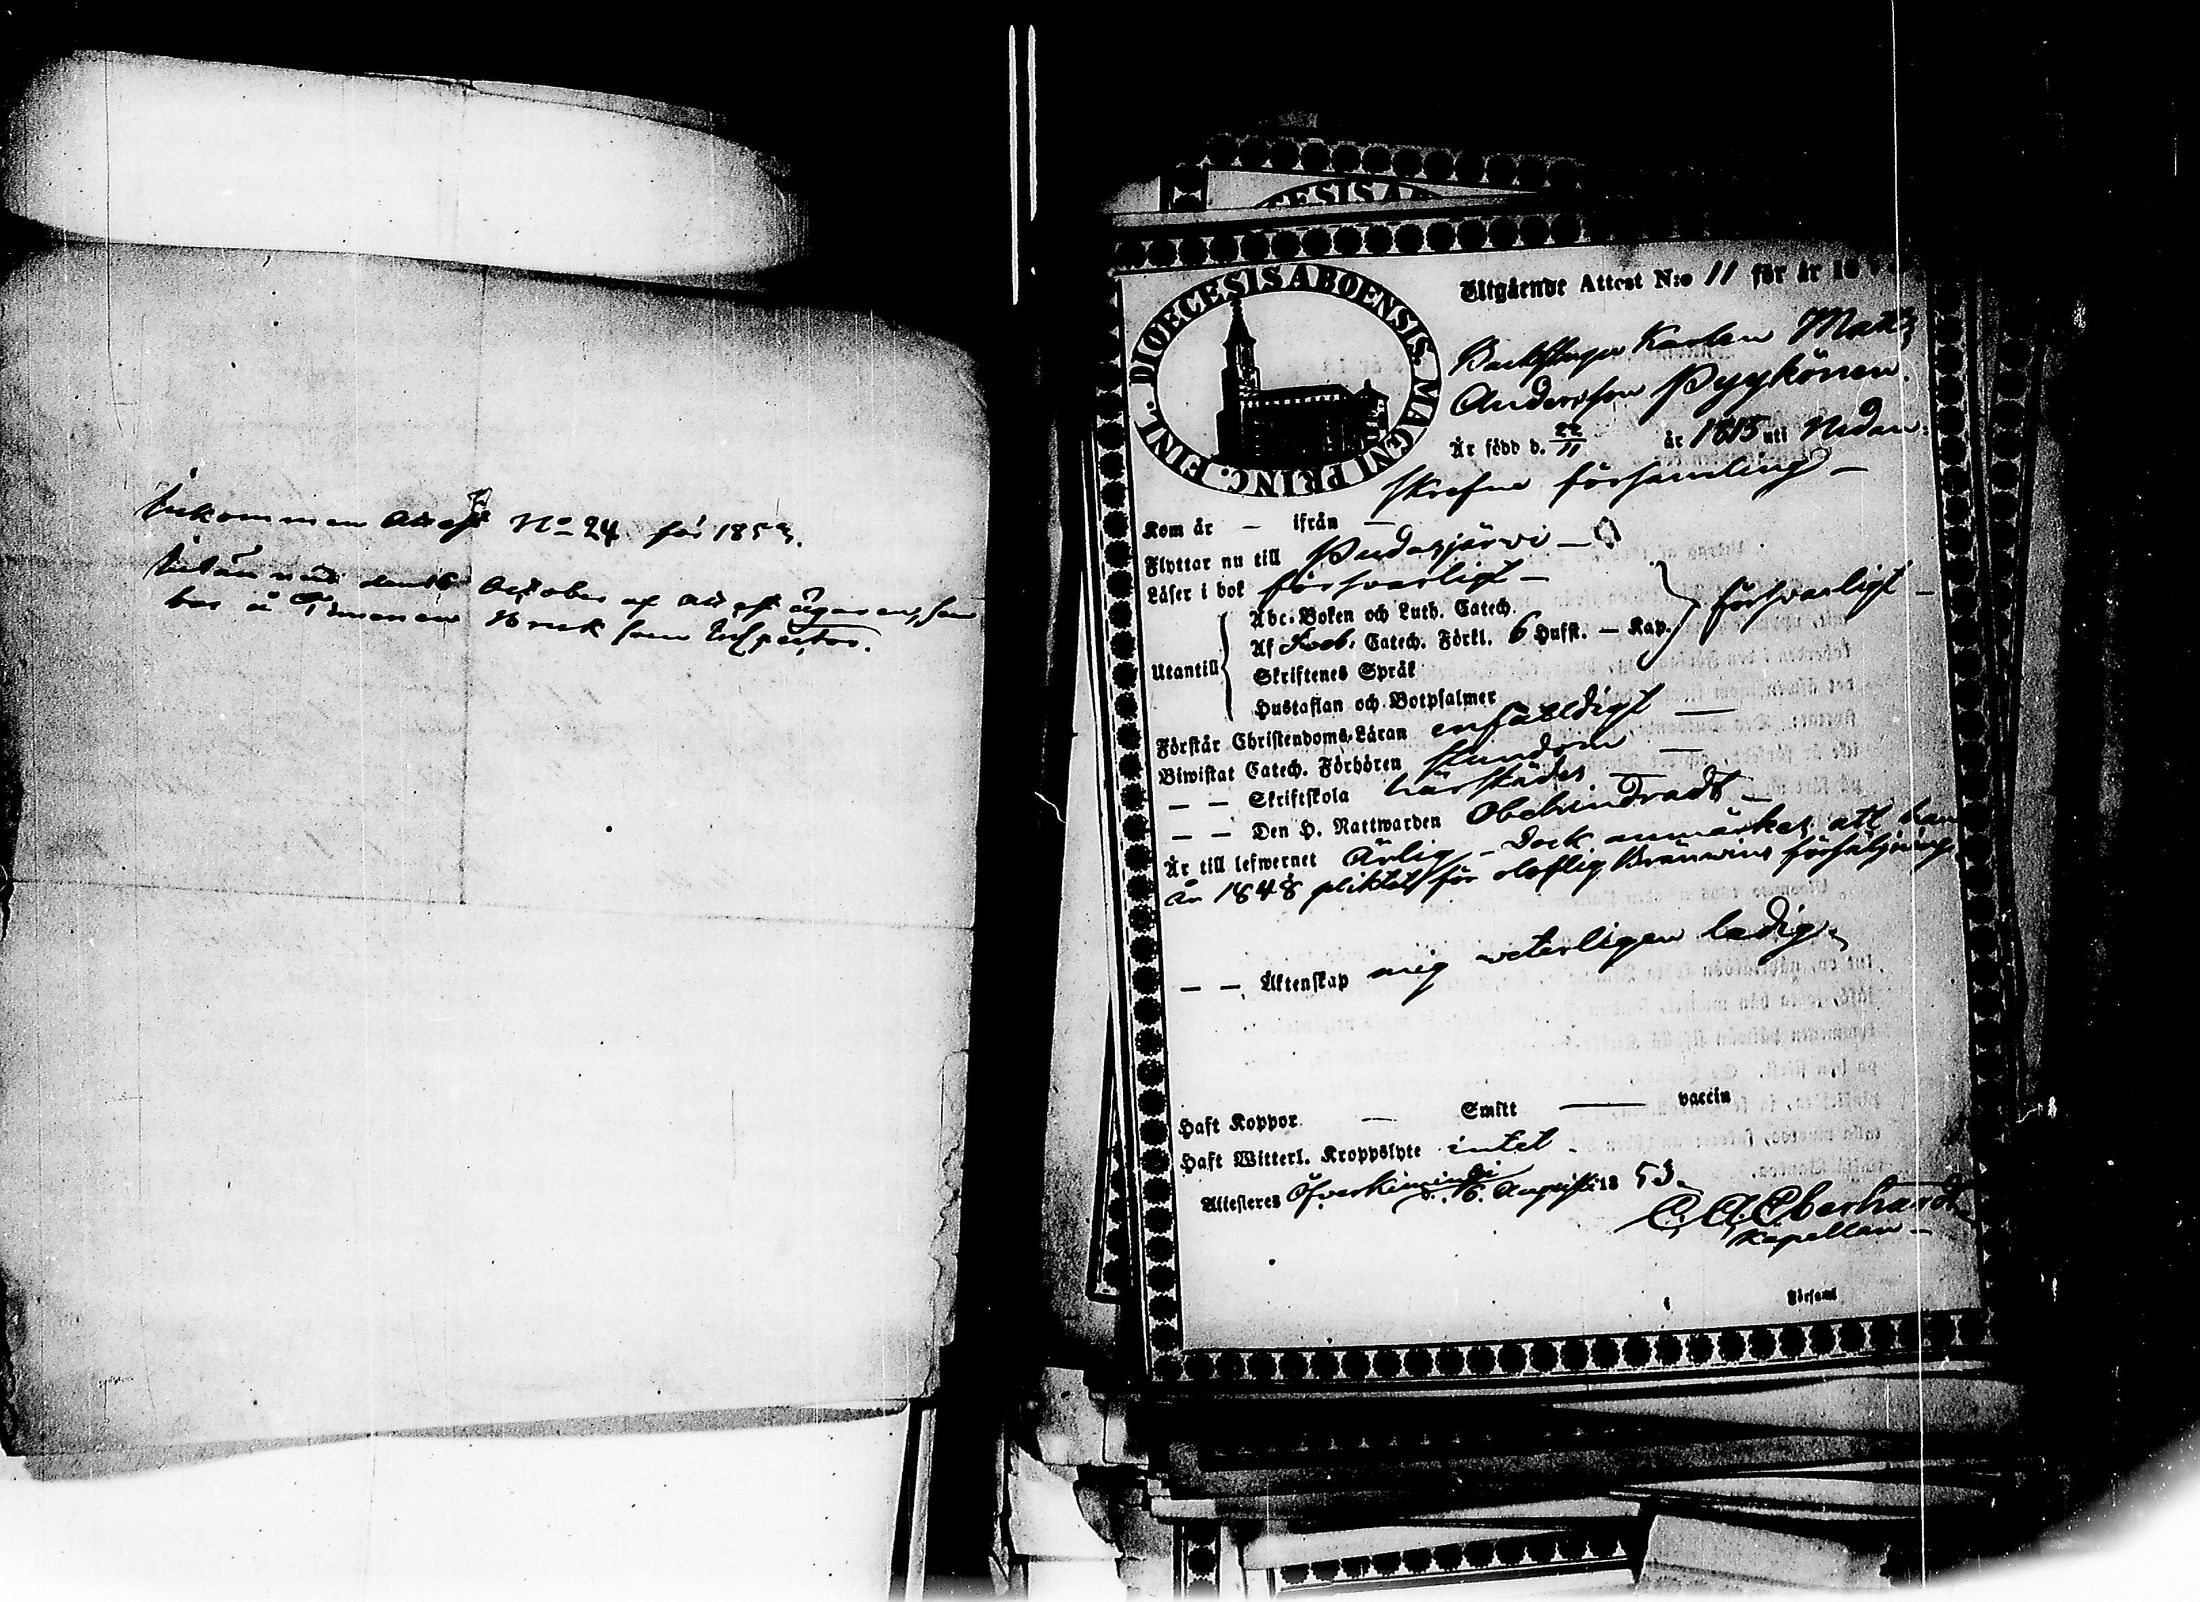 Inkommen Attest No 24 för 1853.
den 6 October af Attest ägaren, som
bor å Bruk som Inspector.
ŒCESIS A
DIOECESIS ABOENSIS. MAGNI PRINC. FINL.
Utgående Attest N:o 11 för år 18
Backstugu Karlen Matts
Andersson Pyykönen.
Är född d. 22/11 år 1815 uti Nedan-
skrefne församling –
Kom år – ifrån –
Flyttar nu till Pudasjärvi –
Läser i bok försvarligt –
Utantill
Abc-Boken och Luth. Catech.
Af Sveb. Catech. Förkl. 6 Hufst. – Kap.
försvarligt –
Skriftenes Språk
Hustaflan och Botpsalmer
Förstår Christendoms-Läran enfaldigt –
Biwistat Catech. Förhören stundom –
– – Skriftskola härstädes –
– – Den H. Nattwarden Obehindradt –
Är till lefwernet Ärlig – Dock anmärkes att han
år 1848 pliktat för olaflig Bränwins försäljning.
– – Äktenskap mig veterligen ledig.
Haft Koppor – Smitt – vaccin
Haft Witterl. Kroppslyte intet.
Attesteres Öfverkiminki d. 6. Augusti 18 53.
C. A. Eberhardt
Kapellan –
Församl